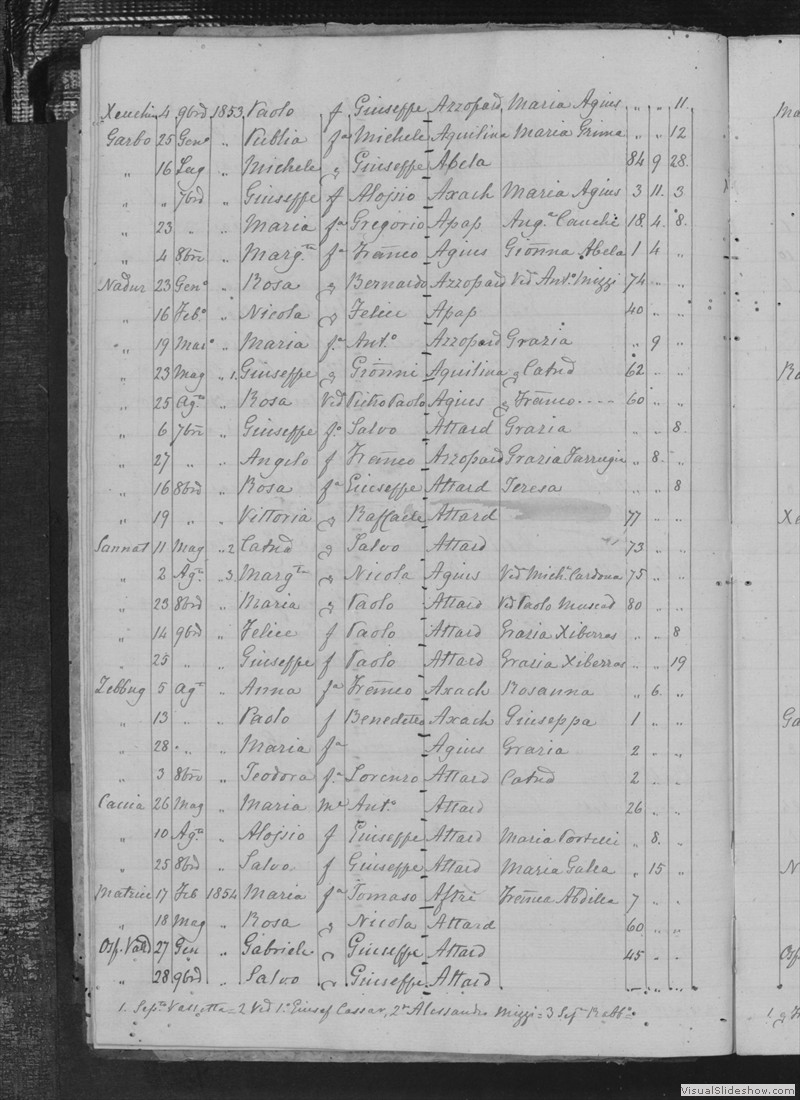 Xeuchia 4 9bre 1853 Paolo f Giuseppe Azzopard Maria Agius " " 11.
Garbo 25 Geno " Publia fa Michele Aquilina Maria Grima " " 12
" 16 Lug " Michele " Giuseppe Abela 84 9 28.
" " 7bre " Giuseppe f Alojsio Axach Maria Agius 3 11. 3
" 23 " " Maria fa Gregorio Apap Anga Cauchi 18. 4. 8.
" 4 8bre " Margta fa Franco Agius Gionna Abela 1 4 "
Nadur 23 Geno " Rosa q Bernardo Azzopard Ved Anto Mizzi 74 " "
" 16 Febo " Nicola q Felice Apap 40 " "
" 19 Maro " Maria fa Anto Azzopard Grazia " 9 "
" 23 Mag " 1. Giuseppe q Gionni Aquilina q Catnd 62 " "
" 25 Aga " Rosa Ved Pietro Paolo Agius q Franco 60 " "
" 6 7bre " Giuseppe fo Salvo Attard Grazia " " 8.
" 27 " " Angelo f Franco Azzopard Grazia Farrugia " 8. "
" 16 8bre " Rosa fa Giuseppe Attard Teresa " " 8
" 19 " " Vittoria q Raffaele Attard 77 " "
Sannat 11 Mag " 2 Catnd q Salvo Attard 73 " "
" 2 Aga " 3. Margta q Nicola Agius Ved Michl Cardona 75 " "
" 23 8bre " Maria q Paolo Attard Ved Paolo Muscad 80 " "
" 14 9bre " Felice f Paolo Attard Grazia Xiberras " " 8
" 25 " " Giuseppe f Paolo Attard Grazia Xiberras " " 19
Zebbug 5 Aga " Anna fa Franco Axach Rosanna " 6. "
" 13 " " Paolo f Benedetto Axach Giuseppa 1 " "
" 28 " " Maria fa Agius Grazia 2 " "
" 3 8bre " Teodora fa Lorenzo Attard Catnd 2 " "
Caccia 26 Mag " Maria me Anto Attard 26 " "
" 10 Aga " Alojsio f Giuseppe Attard Maria Portelli " 8. "
" 25 8bre " Salvo f Giuseppe Attard Maria Galea " 15 "
Matrice 17 Feb 1854 Maria fa Tomaso Aftre Franca Abdilla 7 " "
" 18 Mag " Rosa q Nicola Attard 60 " "
Osp. Vattd 27 Gen " Gabriele " Giuseppe Attard 45 " "
" 28 9bre " Salvo " Giuseppe Attard " " "
1. Sepa Valletta = 2 Ved 1o Giusep Cassar, 2o Alessandro Mizzi = 3 Sepa Rabbo
VisualSlideshow.com